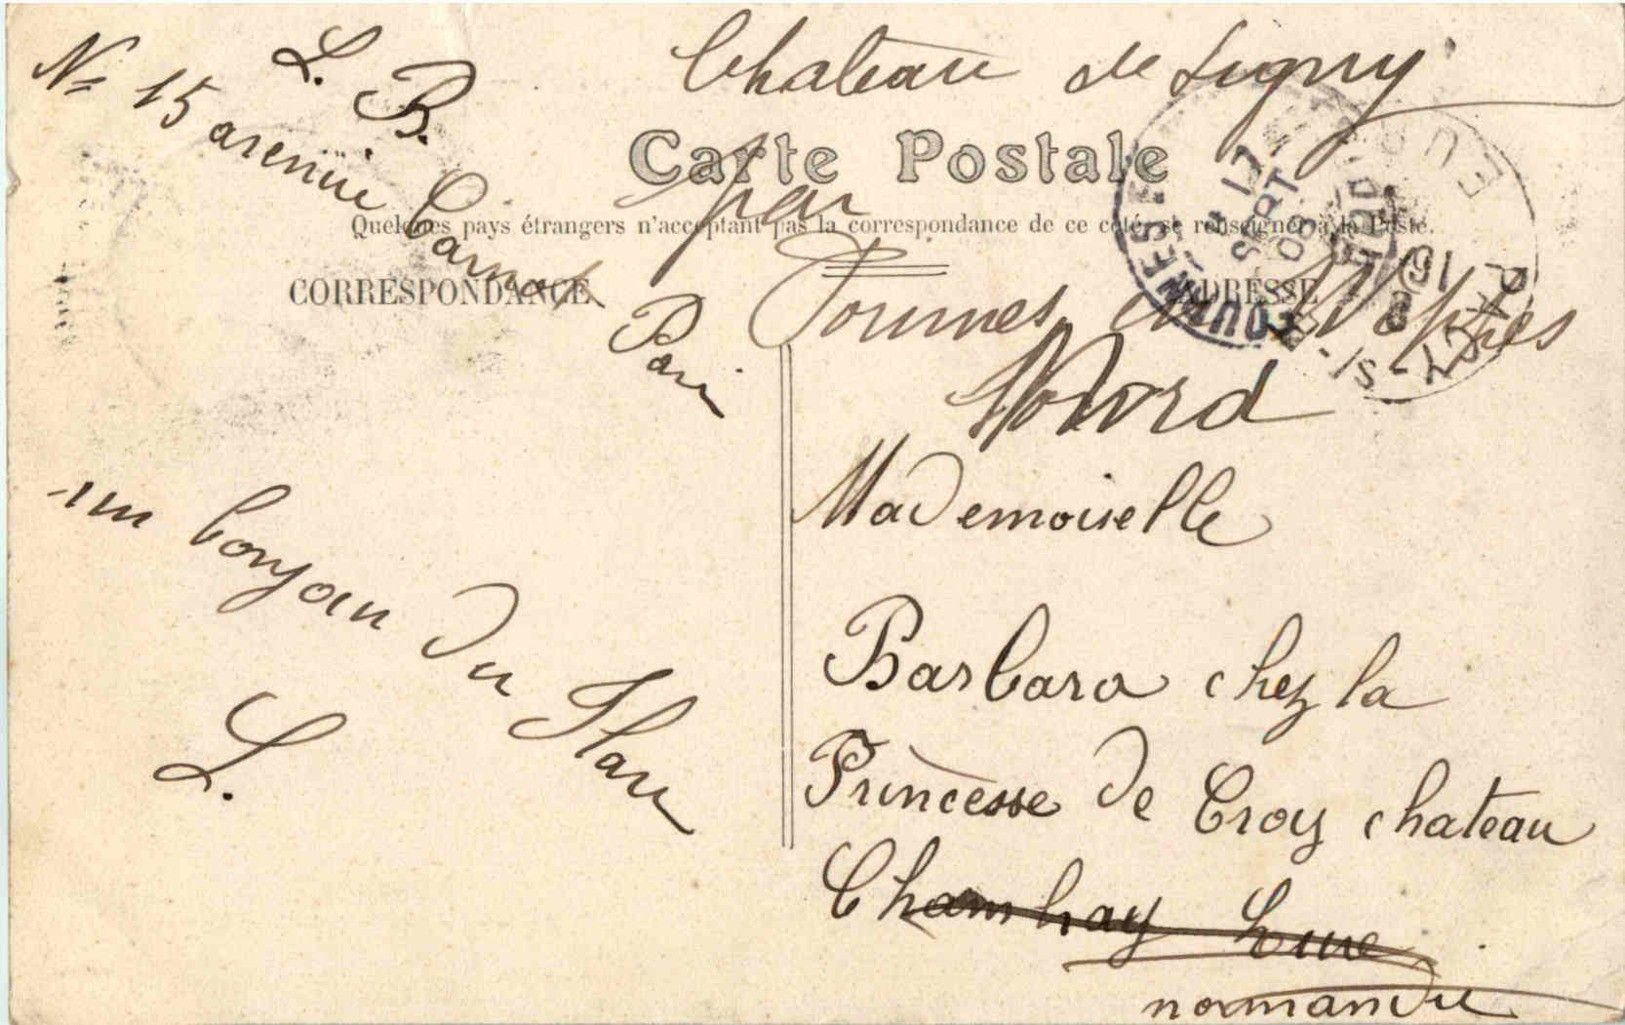 L. B.
N° 15 avenue Carnot
Paris
un bonjour du
L.
Chateau de Ligny
Carte Postale
par
Quelques pays étrangers n'acceptant pas la correspondance de ce coté, se renseigner à la Poste.
CORRESPONDANCE
ADRESSE
Weppes
Nord
Mademoiselle
Barbara chez la
Princesse de Croy chateau
Chambray Eure
normandie
PACY-
EURE
17
SEPT
08
16
NORD